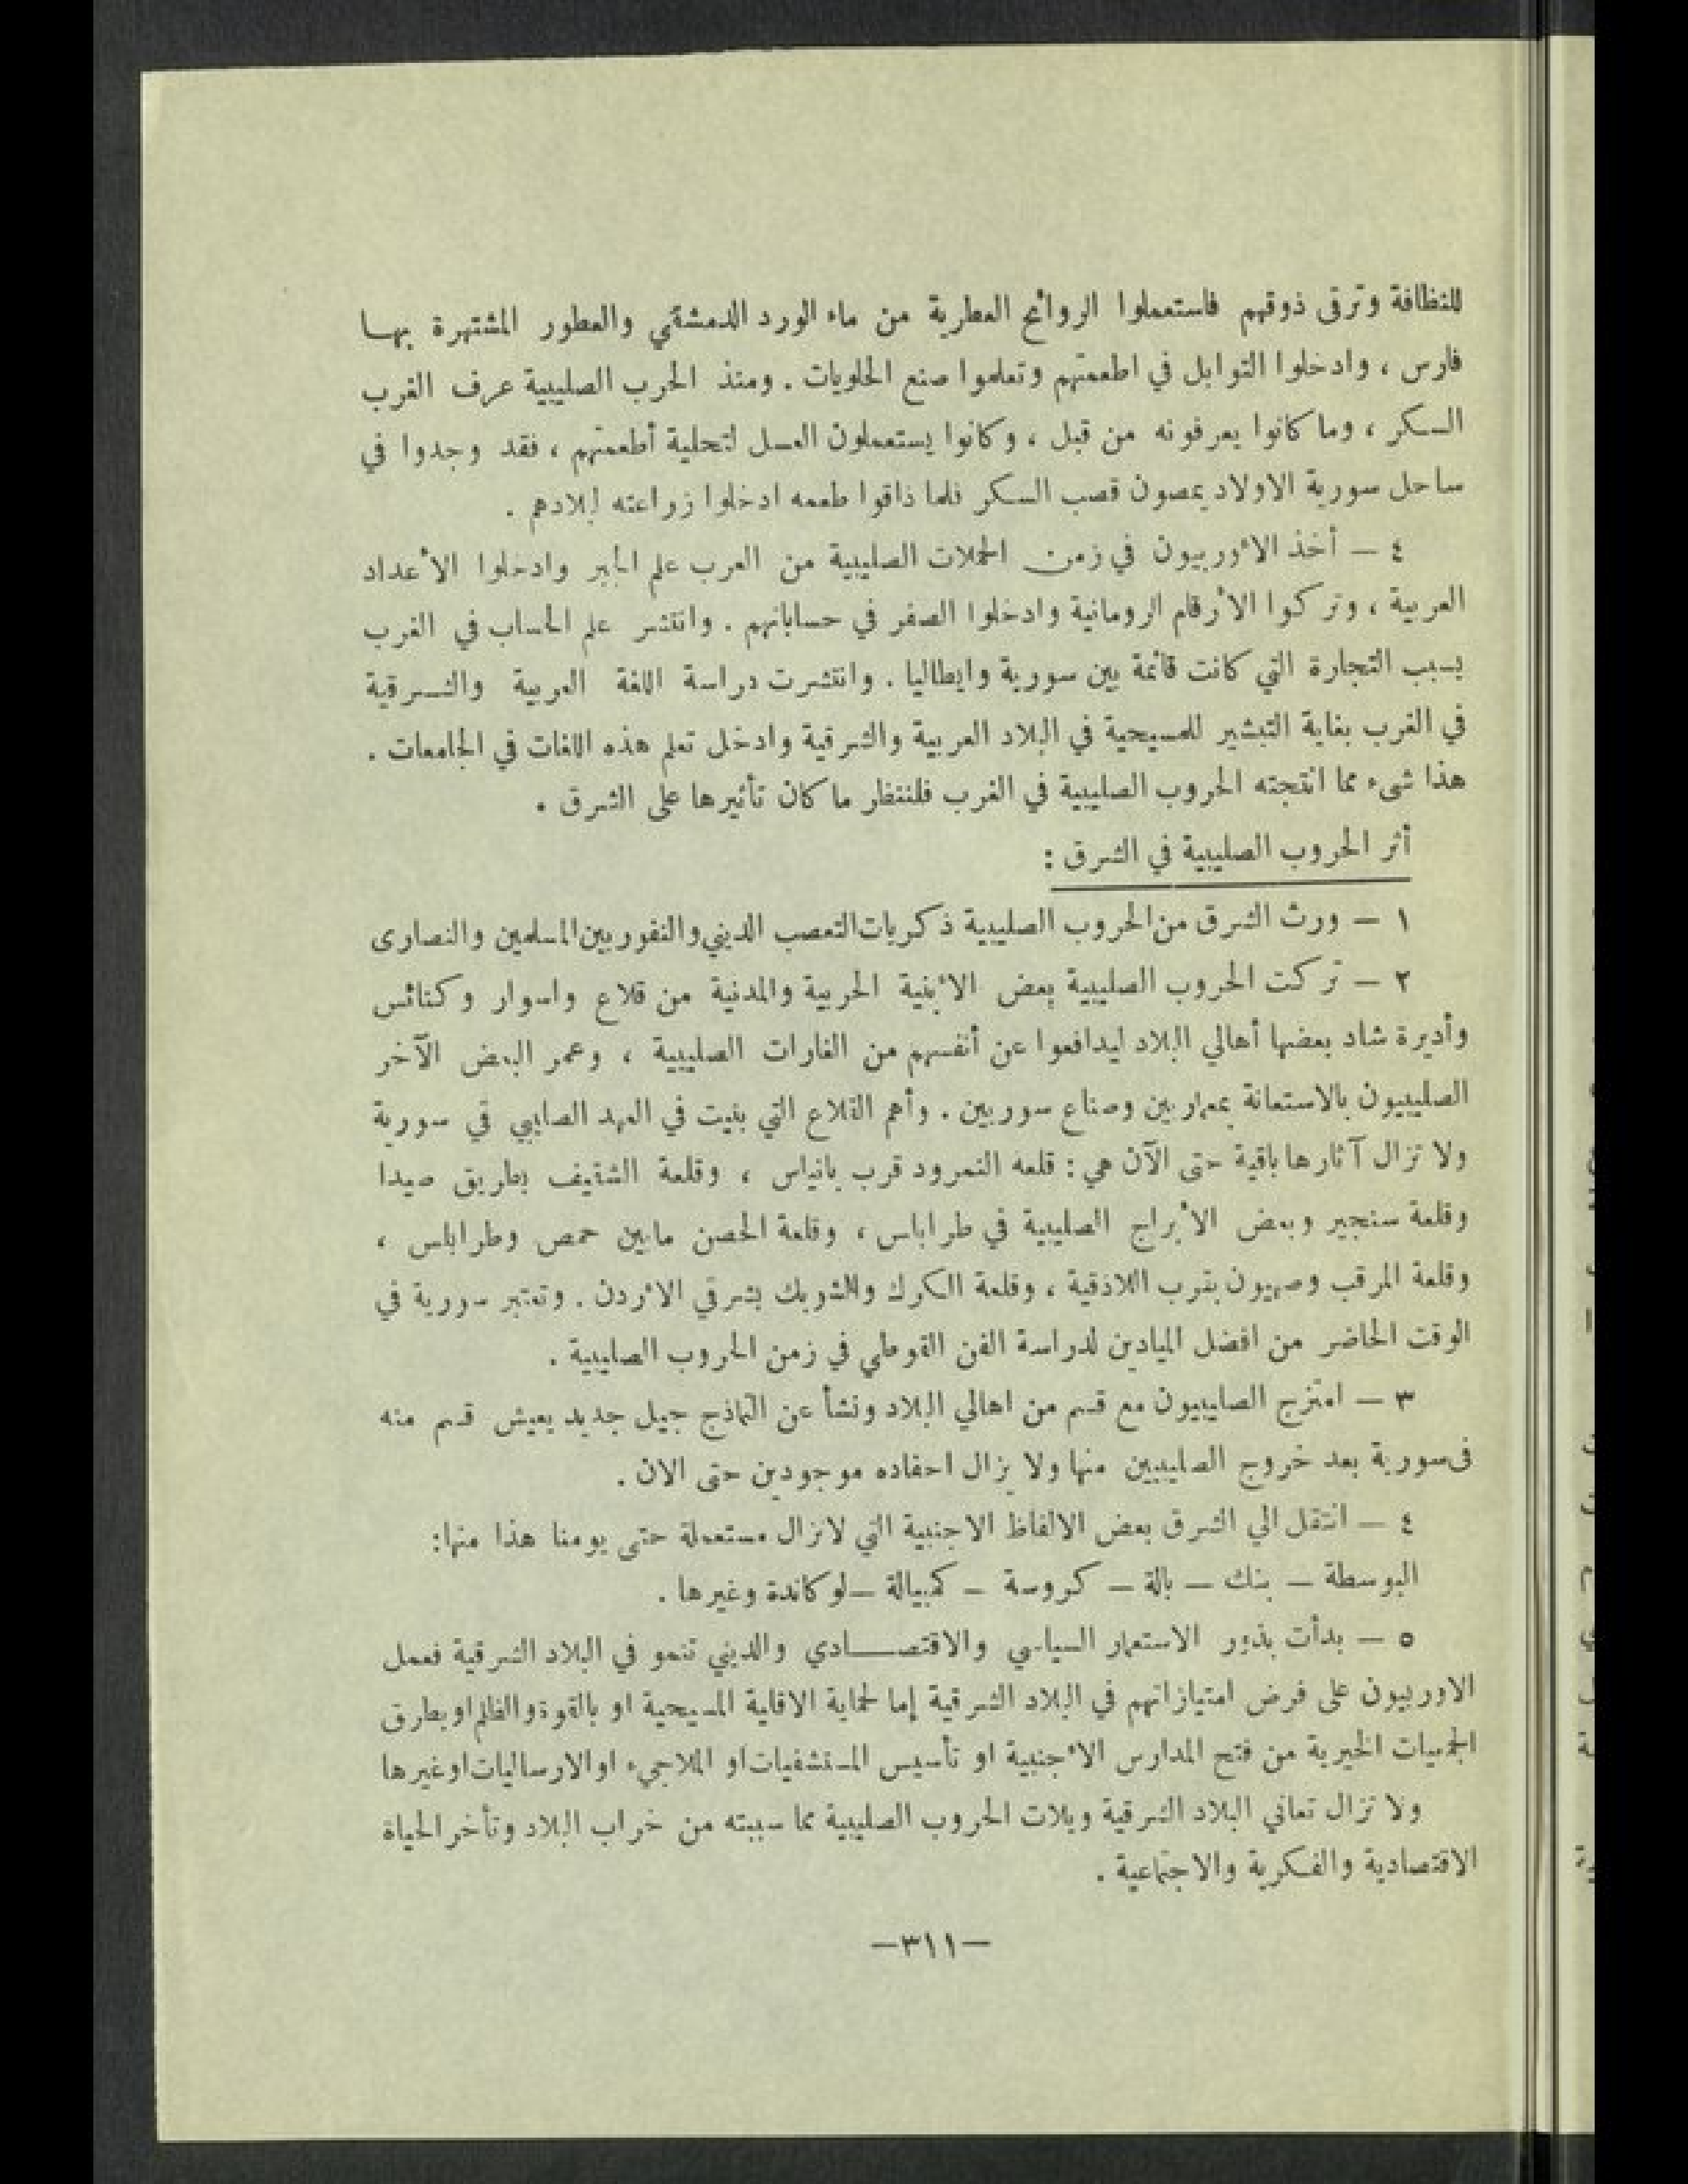 للنظافة وترقى ذوقهم فاستعملوا الروائح العطرية من ماء الورد الدمشقي والعطور المشتهرة بهـا
فارس ، وادخلوا التوابل في اطعمتهم وتعلموا صنع الحلويات . ومنذ الحرب الصليبية عرف الغرب
السكر ، وما كانوا يعرفونه من قبل ، وكانوا يستعملون العسل لتحلية أطعمتهم ، فقد وجدوا في
ساحل سورية الاولاد يمصون قصب السكر فلما ذاقوا طعمه ادخلوا زراعته لبلادهم .
٤ – أخذ الأوربيون في زمن الحملات الصليبية من العرب علم الجبر وادخلوا الأعداد
العربية ، وتركوا الأرقام الرومانية وادخلوا الصفر في حساباتهم . وانتشر علم الحساب في الغرب
بسبب التجارة التي كانت قائمة بين سورية وايطاليا . وانتشرت دراسة اللغة العربية والشرقية
في الغرب بغاية التبشير للمسيحية في البلاد العربية والشرقية وادخل تعلم هذه اللغات في الجامعات .
هذا شيء مما انتجته الحروب الصليبية في الغرب فلننتظر ما كان تأثيرها على الشرق .
أثر الحروب الصليبية في الشرق :
١ – ورث الشرق من الحروب الصليبية ذكريات التعصب الديني والنفور بين المسلمين والنصارى
٢ – تركت الحروب الصليبية بعض الأبنية الحربية والمدنية من قلاع واسوار وكنائس
وأديرة شاد بعضها أهالي البلاد ليدافعوا عن أنفسهم من الغارات الصليبية ، وعمر البعض الآخر
الصليبيون بالاستعانة بمعماريين وصناع سوريين . وأهم القلاع التي بنيت في العهد الصليبي في سورية
ولا تزال آثارها باقية حتى الآن هي : قلعه النمرود قرب بانياس ، وقلعة الشقيف بطريق صيدا
وقلعة سنجير وبعض الأبراج الصليبية في طرابلس ، وقلعة الحصن مابين حمص وطرابلس ،
وقلعة المرقب وصهيون بقرب اللاذقية ، وقلعة الكرك والشوبك بشرقي الأردن . وتعتبر سورية في
الوقت الحاضر من افضل الميادين لدراسة الفن القوطي في زمن الحروب الصليبية .
٣ – امتزج الصليبيون مع قسم من اهالي البلاد ونشأ عن التمازج جيل جديد يعيش قسم منه
فى سورية بعد خروج الصليبيين منها ولا يزال احفاده موجودين حتى الان .
٤ – انتقل الي الشرق بعض الالفاظ الاجنبية التي لاتزال مستعملة حتى يومنا هذا منها:
البوسطة – بنك – بالة – كروسة – كمبيالة – لوكاندة وغيرها .
٥ – بدأت بذور الاستعمار السياسي والاقتصـــادي والديني تنمو في البلاد الشرقية فعمل
الاوربيون على فرض امتيازاتهم في البلاد الشرقية إما لحماية الاقلية المسيحية او بالقوة والظلم او بطرق
الجمعيات الخيرية من فتح المدارس الأجنبية او تأسيس المستشفيات او الملاجيء او الارساليات او غيرها
ولا تزال تعاني البلاد الشرقية ويلات الحروب الصليبية مما سببته من خراب البلاد وتأخر الحياة
الاقتصادية والفكرية والاجتماعية .
–٣١١–